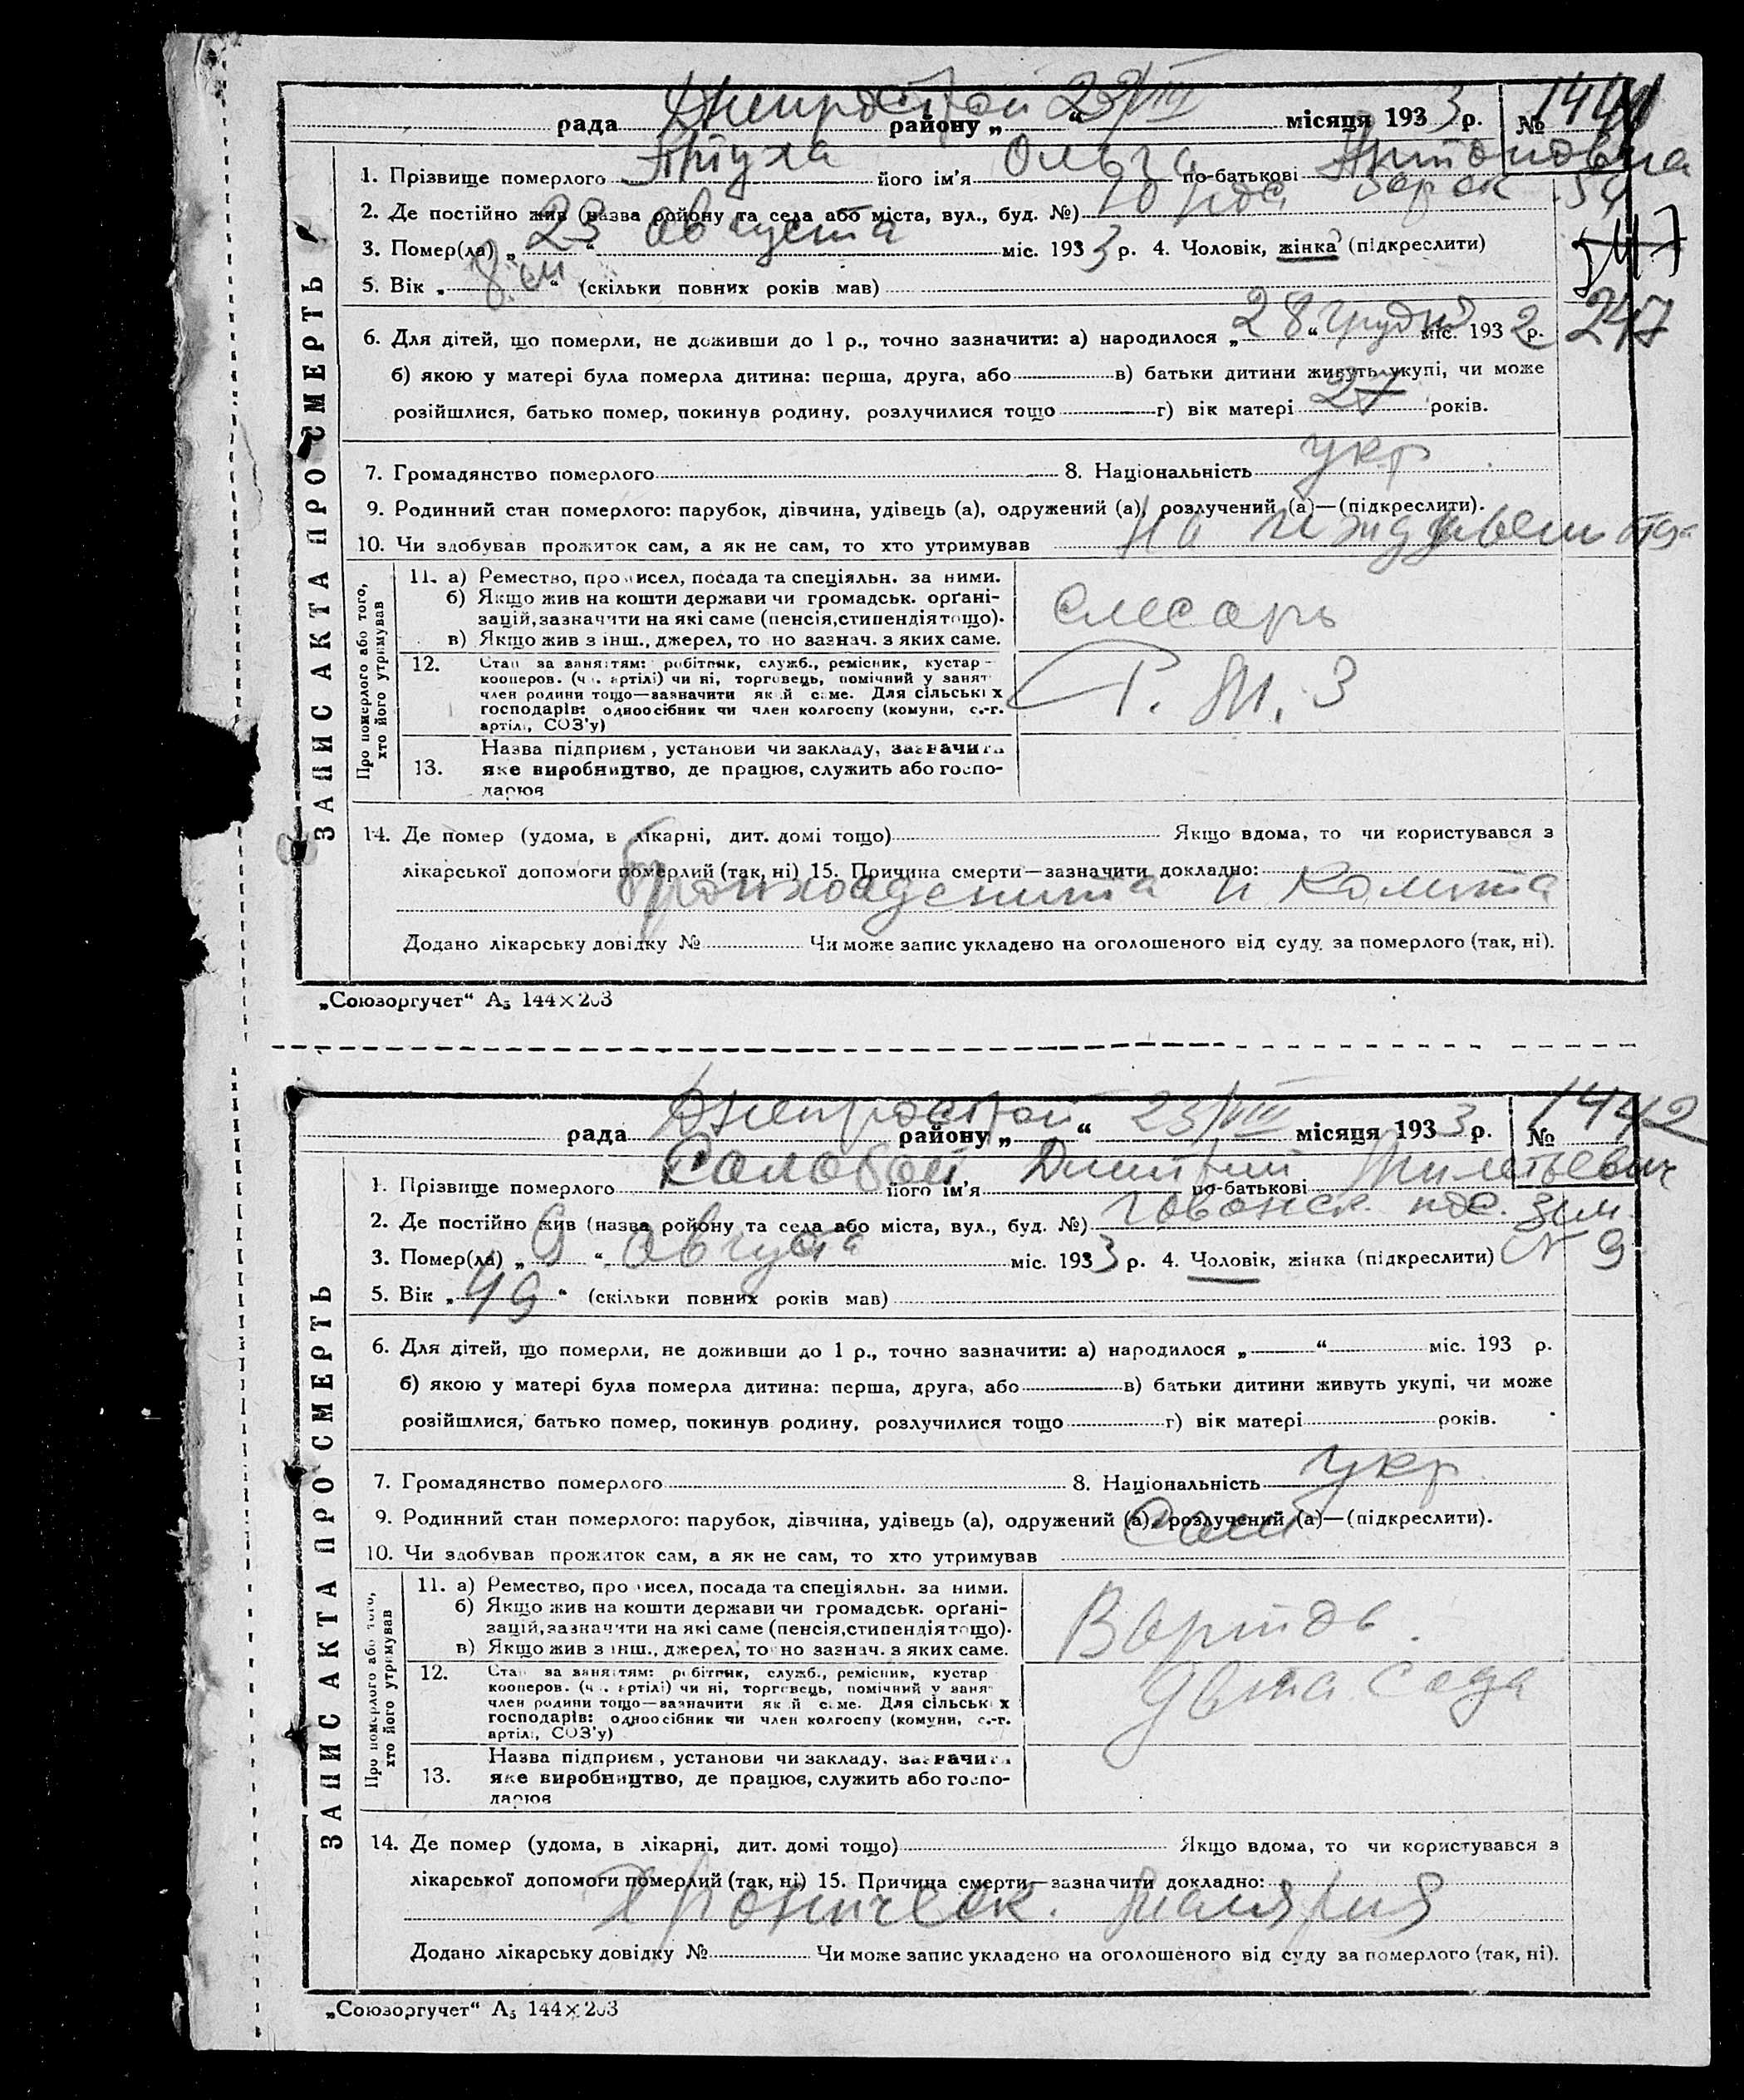 Днепрострой 23/VIII
рада району „ “ місяця 1933 р. № 1441
1. Прізвище померлого його ім'я Ольга по-батькові Антоновна
2. Де постійно жив (назва району та села або міста, вул., буд. №) 10 барак 54
3. Помер(ла) „23“ августа міс. 1933 р. 4. Чоловік, жінка (підкреслити)
5. Вік „8 м“ (скільки повних років мав)
6. Для дітей, що померли, не доживши до 1 р., точно зазначити: а) народилося „28“ грудня міс. 1932 р. 247
б) якою у матері була померла дитина: перша, друга, або в) батьки дитини живуть укупі, чи може
розійшлися, батько помер, покинув родину, розлучилися тощо г) вік матері 27 років.
7. Громадянство померлого 8. Національність укр
9. Родинний стан померлого: парубок, дівчина, удівець (а), одружений (а), розлучений (а)—(підкреслити).
10. Чи здобував прожиток сам, а як не сам, то хто утримував на иждивен отца
ЗАПИС АКТА ПРО СМЕРТЬ
Про померлого або того, хто його утримував
11. а) Ремество, промисел, посада та спеціяльн. за ними.
б) Якщо жив на кошти держави чи громадськ. орґані-
зацій, зазначити на які саме (пенсія, стипендія тощо).
в) Якщо жив з інш., джерел, то но зазнач. з яких саме.
слесарь
12. Стан за заняттям: робітник, служб., ремісник, кустар -
кооперов. (чл. артілі) чи ні, торговець, помічний у занят
член родини тощо—зазначити який саме. Для сільських
господарів: одноосібник чи член колгоспу (комуни, с.-г.
артілі, СОЗ'у)
Р. М. З
13. Назва підприєм, установи чи закладу, зазначити
яке виробництво, де працює, служить або госпо-
дарює
14. Де помер (удома, в лікарні, дит. домі тощо) Якщо вдома, то чи користувався з
лікарської допомоги померлий (так, ні) 15. Причина смерти—зазначити докладно:
бронхоаденита и колита
Додано лікарську довідку № Чи може запис укладено на оголошеного від суду за померлого (так, ні).
„Союзоргучет“ А5 144×203
Днепрострой 23/VIII
рада району „ “ місяця 1933 р. № 1442
1. Прізвище померлого Соловой його ім'я Дмитрий по-батькові
2. Де постійно жив (назва району та села або міста, вул., буд. №) пос. зим.
3. Помер(ла) „9“ августа міс. 1933 р. 4. Чоловік, жінка (підкреслити) № 9
5. Вік „49“ (скільки повних років мав)
6. Для дітей, що померли, не доживши до 1 р., точно зазначити: а) народилося „ “ міс. 193 р.
б) якою у матері була померла дитина: перша, друга, або в) батьки дитини живуть укупі, чи може
розійшлися, батько помер, покинув родину, розлучилися тощо г) вік матері років.
7. Громадянство померлого 8. Національність укр
9. Родинний стан померлого: парубок, дівчина, удівець (а), одружений (а), розлучений (а)—(підкреслити).
сам
10. Чи здобував прожиток сам, а як не сам, то хто утримував
ЗАПИС АКТА ПРО СМЕРТЬ
Про померлого або того, хто його утримував
11. а) Ремество, промисел, посада та спеціяльн. за ними.
б) Якщо жив на кошти держави чи громадськ. орґані-
зацій, зазначити на які саме (пенсія, стипендія тощо).
в) Якщо жив з інш., джерел, то но зазнач. з яких саме.
12. Стан за заняттям: робітник, служб., ремісник, кустар
кооперов. (чл. артілі) чи ні, торговець, помічний у занят
член родини тощо—зазначити який саме. Для сільських
господарів: одноосібник чи член колгоспу (комуни, с.-г.
артілі, СОЗ'у)
13. Назва підприєм, установи чи закладу, зазначити
яке виробництво, де працює, служить або госпо-
дарює
14. Де помер (удома, в лікарні, дит. домі тощо) Якщо вдома, то чи користувався з
лікарської допомоги померлий (так, ні) 15. Причина смерти—зазначити докладно:
Хроническ. малярия
Додано лікарську довідку № Чи може запис укладено на оголошеного від суду за померлого (так, ні).
„Союзоргучет“ А5 144×203